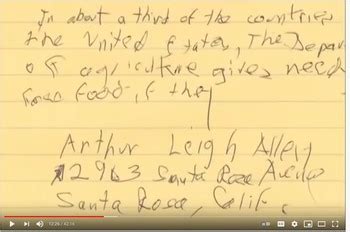 In about a third of the countries
the United States, The Depar
of agriculture gives need
food, if they
Arthur Leigh Allen
2963 Santa Rosa Avenue
Santa Rosa, Calif.